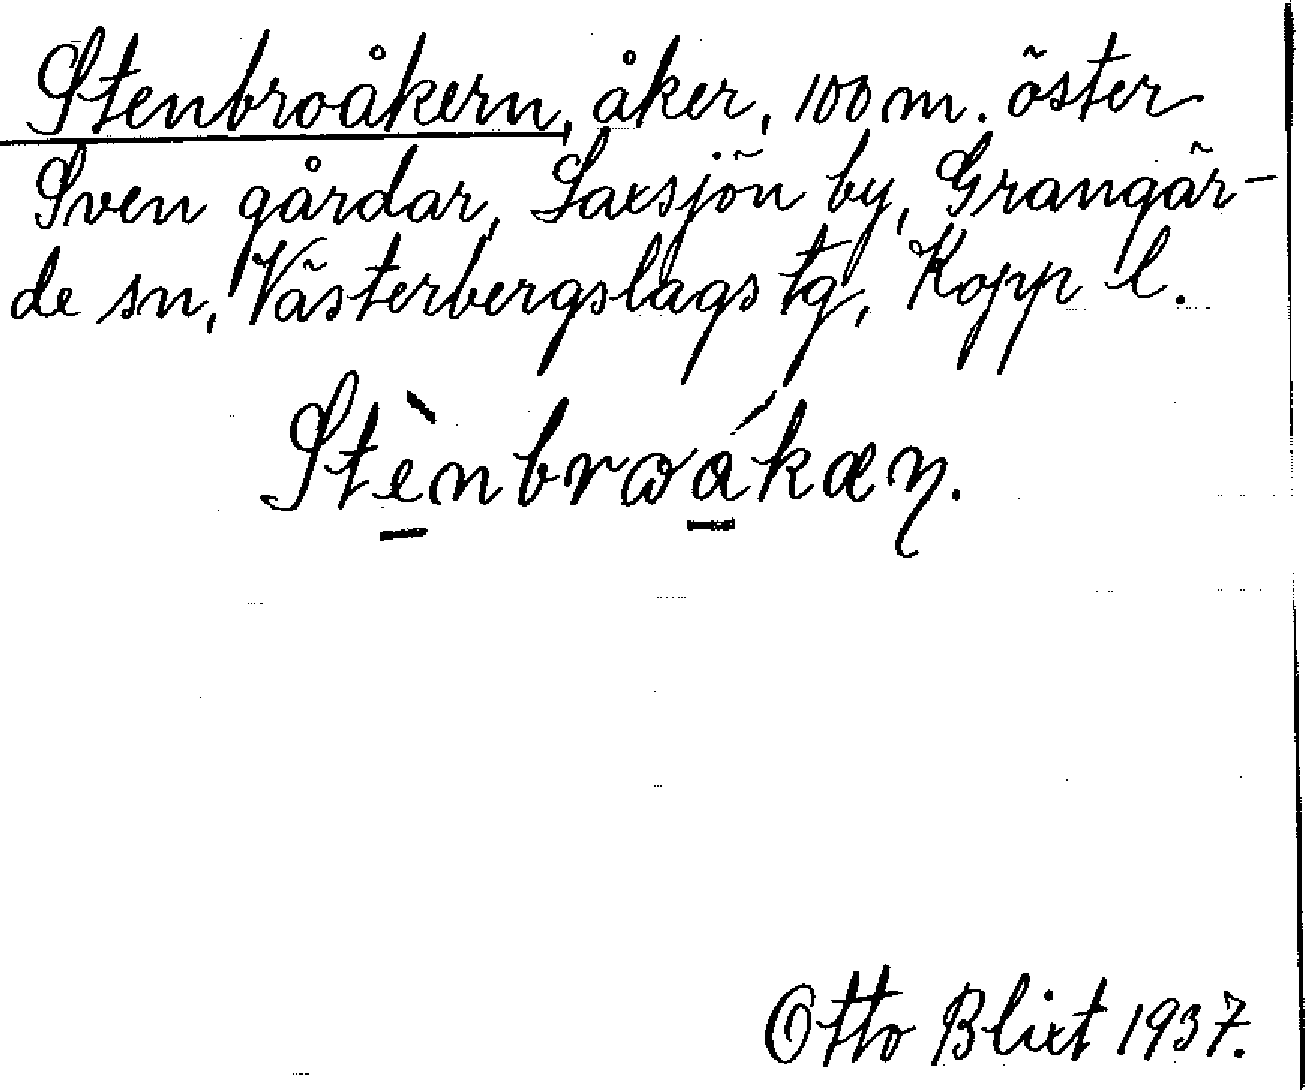 Stenbroåkern, åker, 100 m. öster
Sven gårdar, Saxsjön by, Grangär-
de sn, Västerbergslags tg, Kopp l.
Stènbrωákæn.
Otto Blixt 1937.